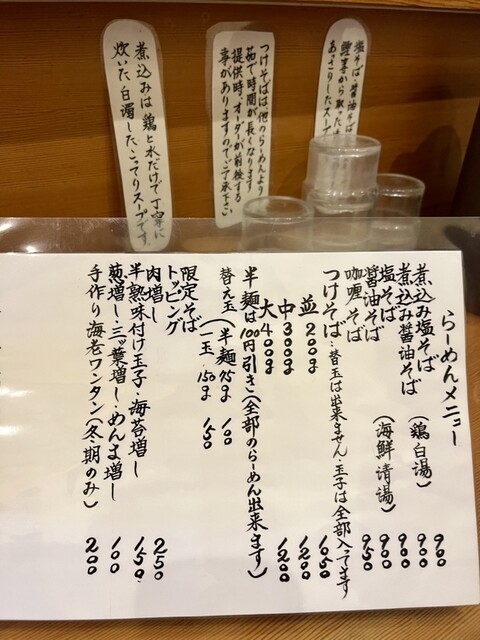 煮込みは鶏と水だけで丁寧に
炊いた白濁したこってりスープです。
つけそばは、他のらーめんより
茹で時間が長くなります
提供時、オーダーが前後する
事がありますのでご了承下さい
塩そば・醤油そば
あっさりしたスープ
らーめんメニュー
煮込み塩そば (鶏白湯) 900
煮込み醤油そば 900
塩そば (海鮮清湯) 900
醤油そば 900
咖喱そば 950
つけそば・替玉は出来ません・玉子は全部入ってます
並 200g 1050
中 300g 1200
大 400g 1200
半麺は100円引き(全部のらーめん出来ます)
替え玉 (半麺75g 100
一玉 150g 150
限定そば
トッピング
肉増し 250
半熟味付け玉子・海苔増し 150
葱増し・三ッ葉増し・めんま増し 100
手作り海老ワンタン(冬期のみ) 200